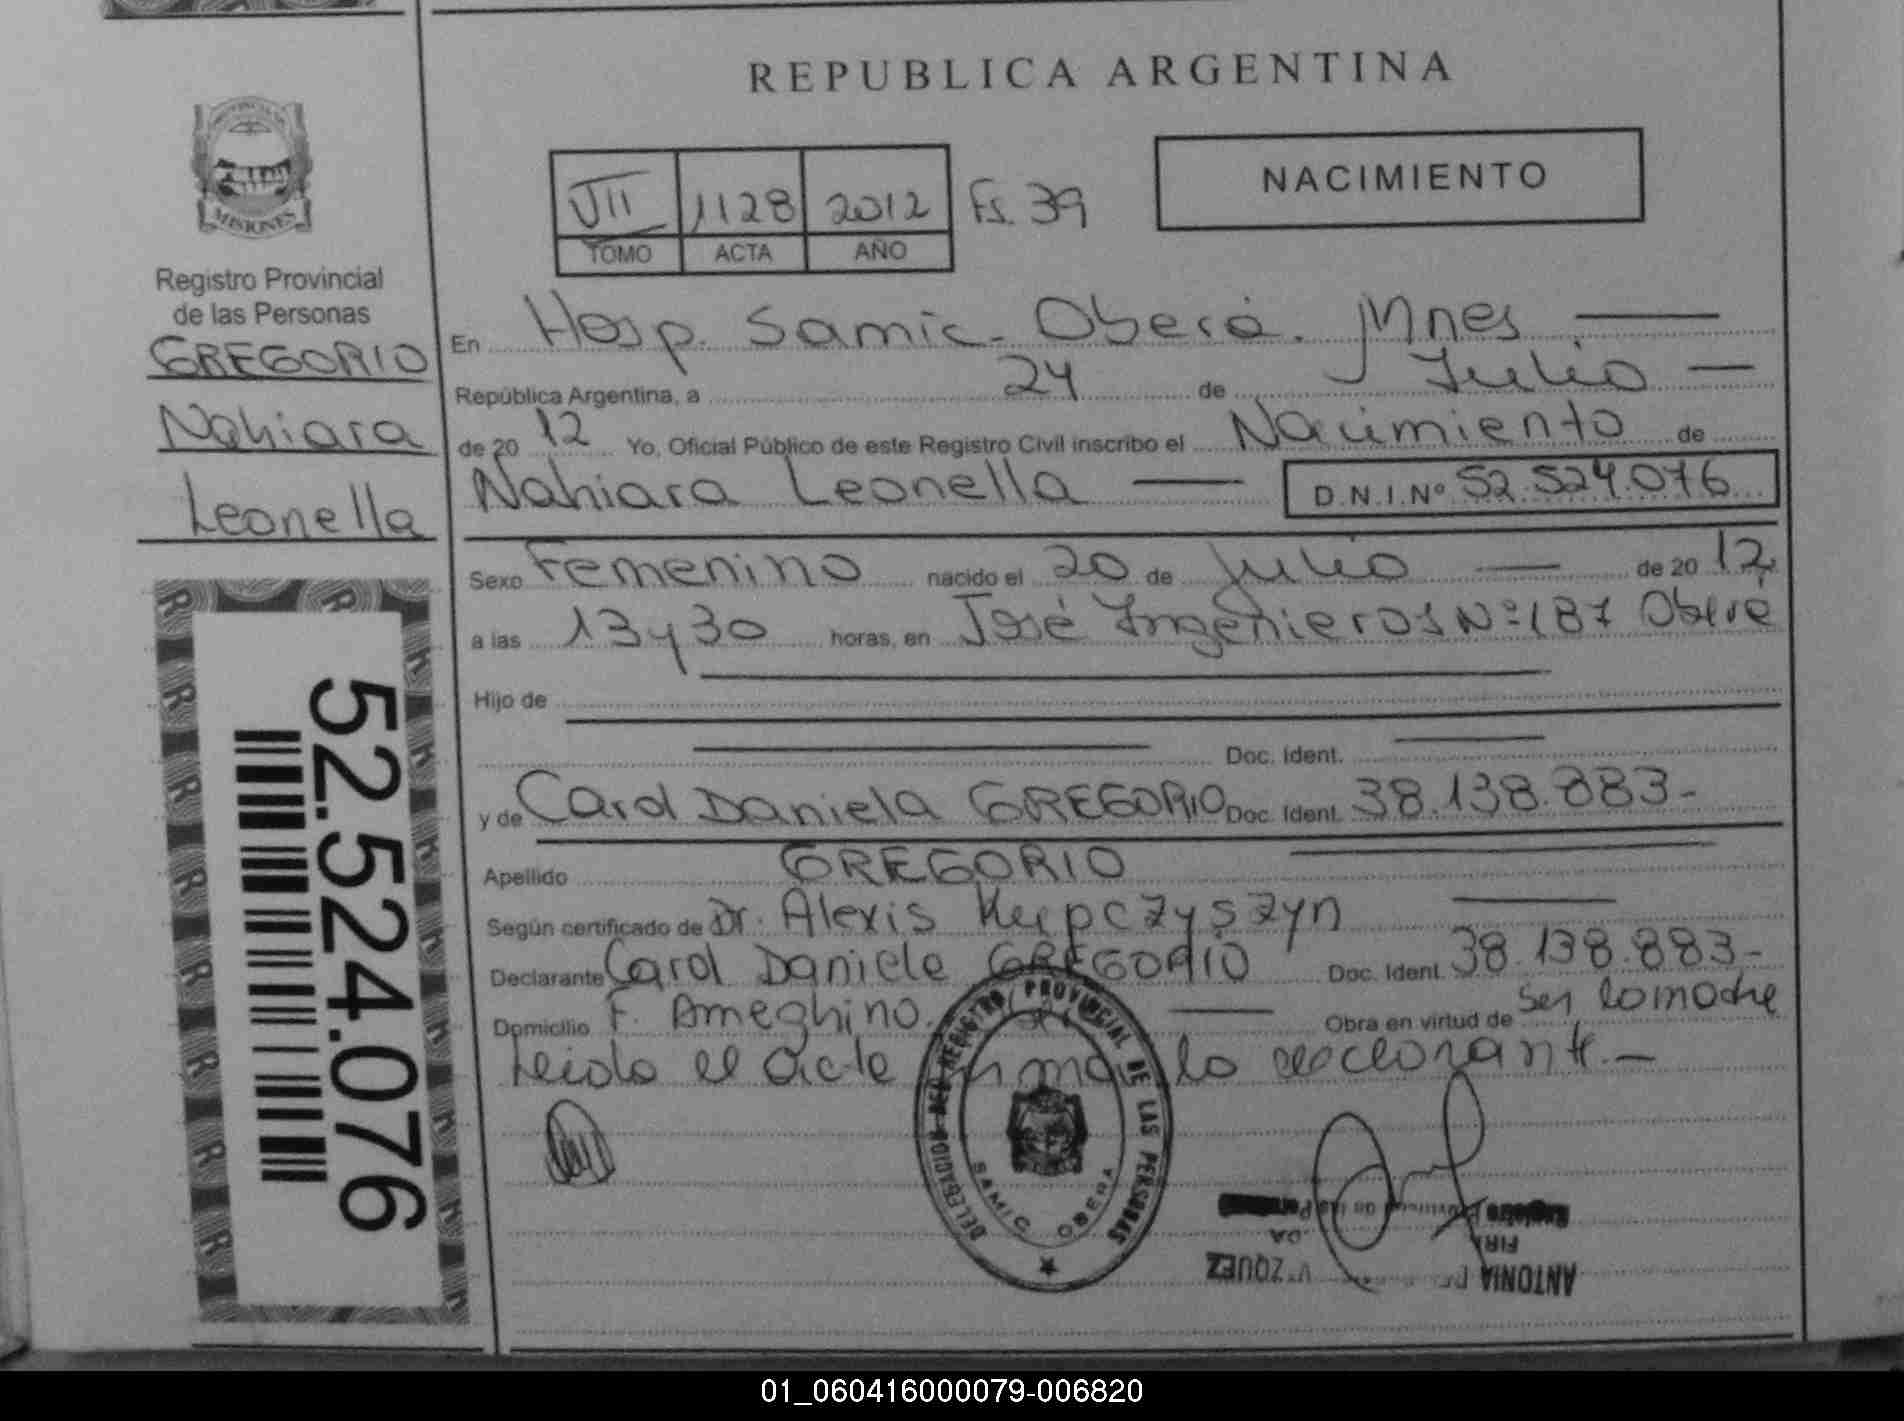 REPUBLICA ARGENTINA
NACIMIENTO
VII 1128 2012 Fs. 39
TOMO ACTA AÑO
PROVINCIA DE
MISIONES
Registro Provincial
de las Personas
GREGORIO
Nahiara
Leonella
52.524.076
En Hosp. Samic - Oberá. Mnes
República Argentina, a 24 de Julio
de 20 12 Yo, Oficial Público de este Registro Civil inscribo el Nacimiento de
Nahiara Leonella D.N.I.Nº 52.524.076
Sexo Femenino nacido el 20 de Julio de 20 12,
a las 13 y 30 horas, en José Ingenieros Nº 187 Oberá
Hijo de
Doc. Ident.
y de Carol Daniela GREGORIO Doc. Ident. 38.138.883-
Apellido GREGORIO
Según certificado de Dr. Alexis Kupczyszyn
Declarante Carol Daniela GREGORIO Doc. Ident. 38.138.883-
Domicilio F. Ameghino. Obra en virtud de ser la madre
Leida el acta firma la declarante.-
DELEGACION DEL REGISTRO PROVINCIAL DE LAS PERSONAS
SAMIC OBERA
ANTONIA
01_060416000079-006820